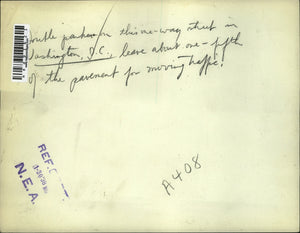 Double parkers on this one-way street in
Washington, D.C., leave about one-fifth
of the pavement for moving traffic.
REF. DEPT.
N.E.A.
A408